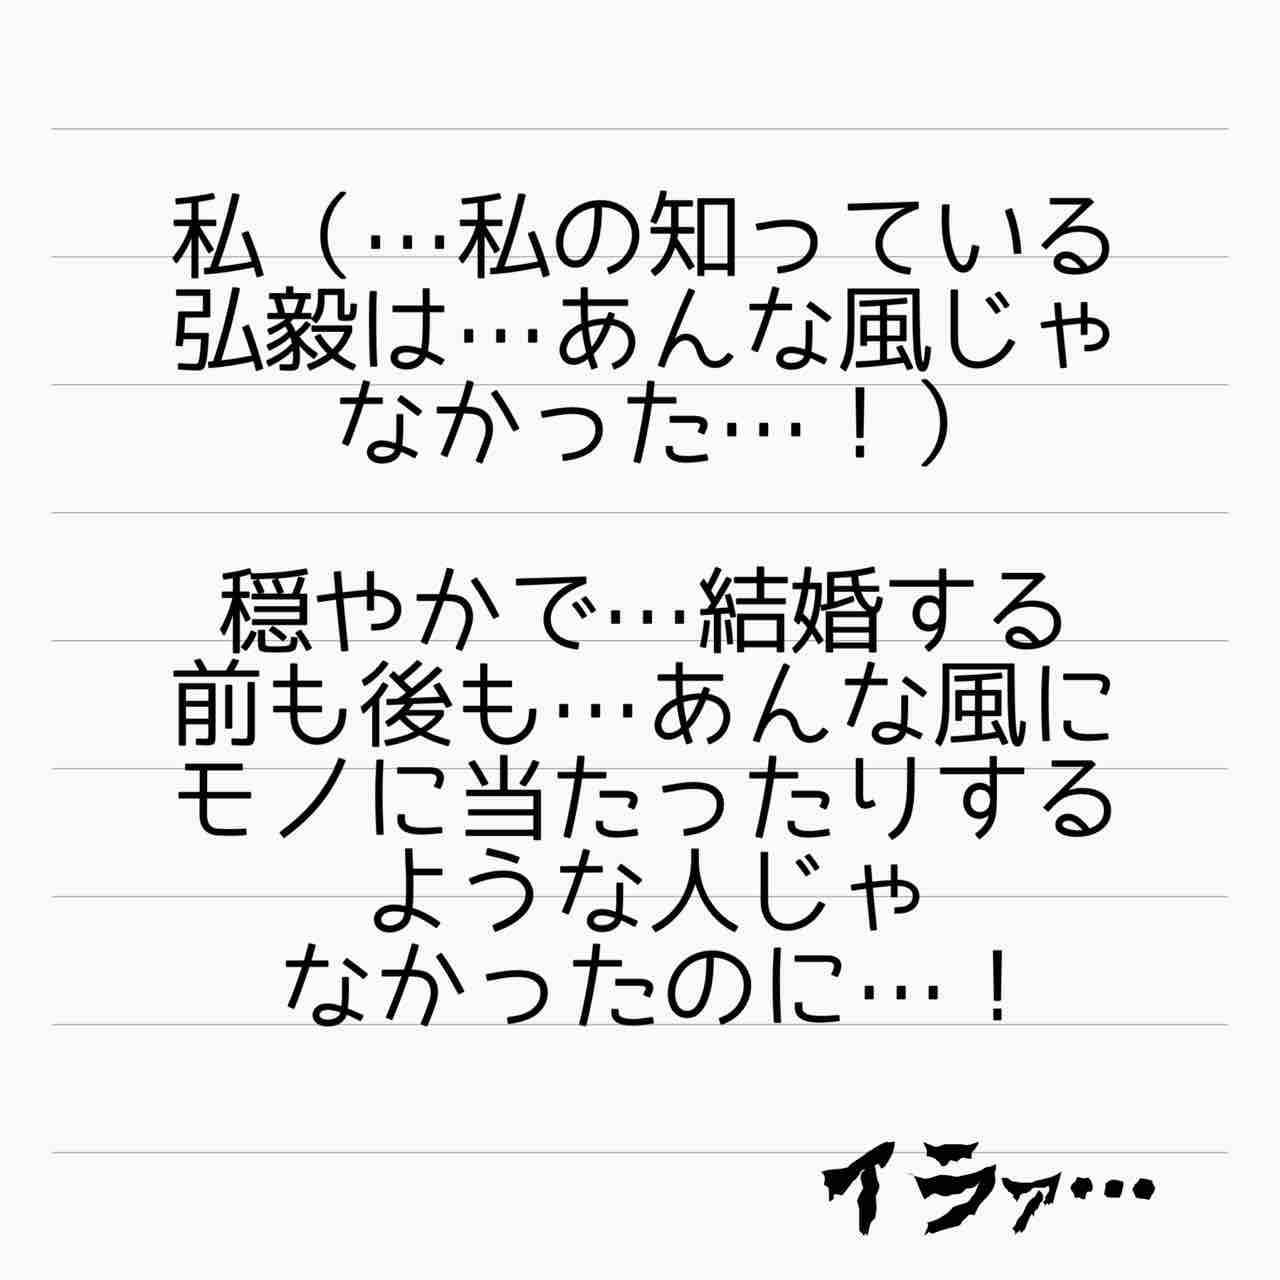 私（…私の知っている
弘毅は…あんな風じゃ
なかった…！）
穏やかで…結婚する
前も後も…あんな風に
モノに当たったりする
ような人じゃ
なかったのに…！
イラァ…